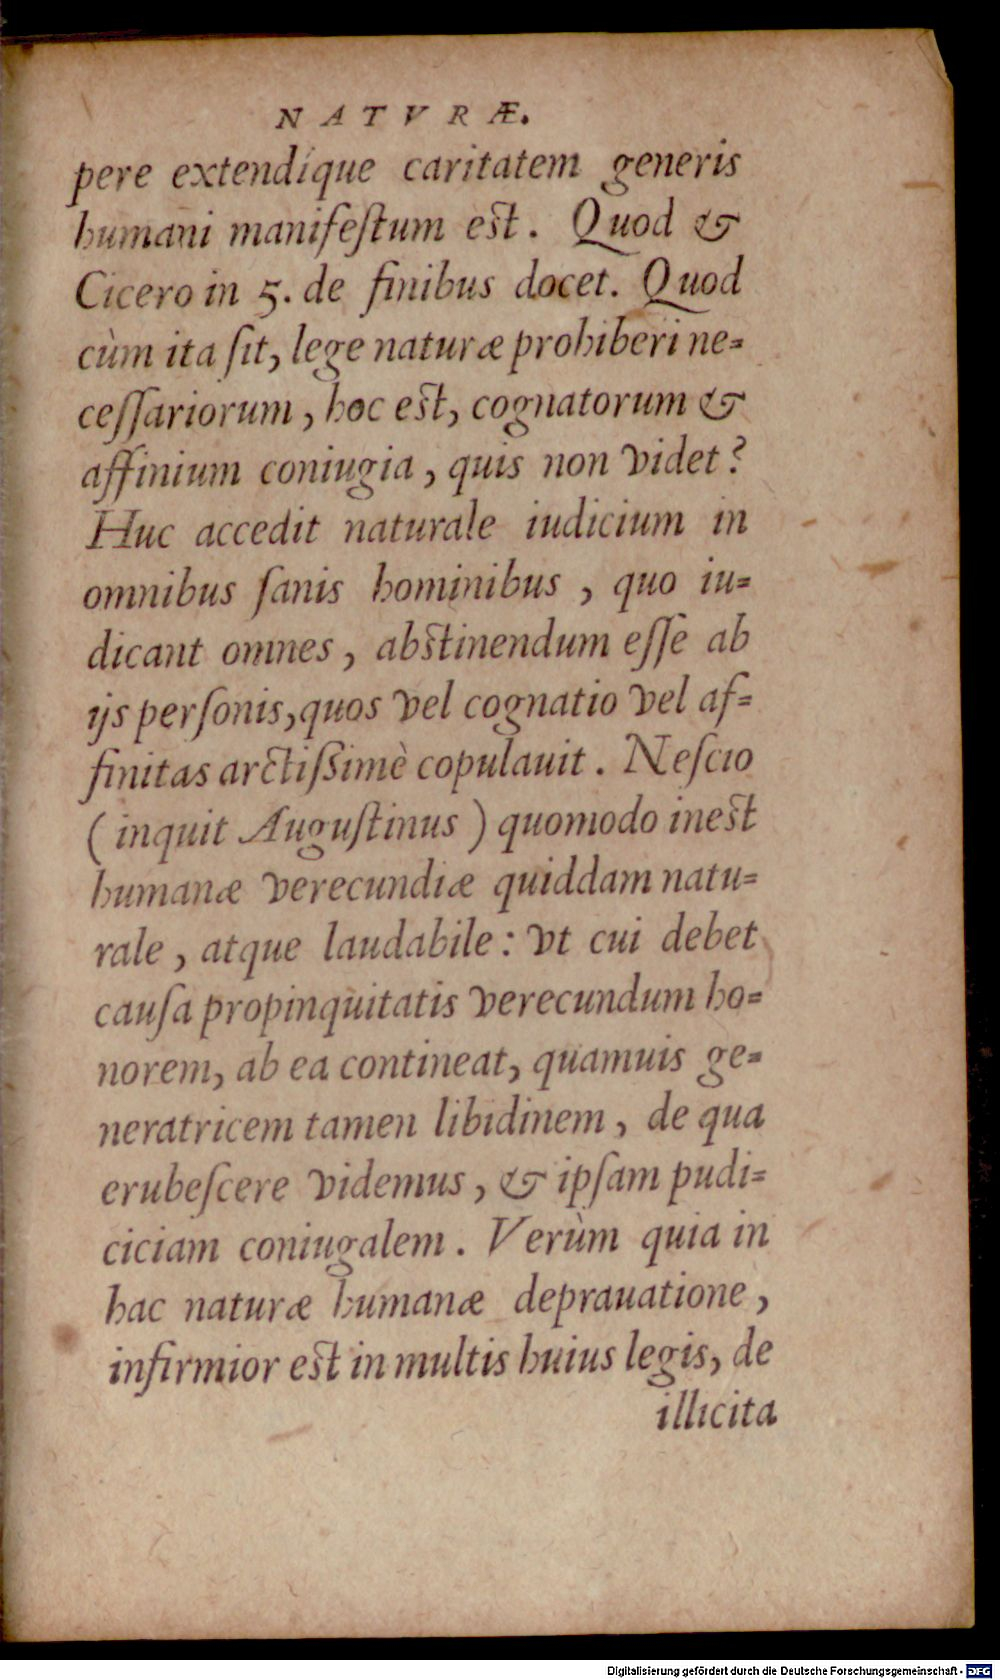 NATVRÆ.
pere extendíque caritatem generis
humani manifeſtum eſt. Quod &
Cicero in 5. de finibus docet. Quod
cùm ita ſit, lege naturæ prohiberi ne=
ceſſariorum, hoc eſt, cognatorum &
affinium coniugia, quis non videt?
Huc accedit naturale iudicium in
omnibus ſanis hominibus, quo iu=
dicant omnes, abſtinendum eſſe ab
ijs perſonis, quos vel cognatio vel af=
finitas arctiſſimè copulauit. Neſcio
(inquit Auguſtinus) quomodo ineſt
humanæ verecundiæ quiddam natu=
rale, atque laudabile: vt cui debet
cauſa propinquitatis verecundum ho=
norem, ab ea contineat, quamuis ge=
neratricem tamen libidinem, de qua
erubeſcere videmus, & ipſam pudi=
ciciam coniugalem. Verùm quia in
hac naturæ humanæ deprauatione,
infirmior eſt in multis huius legis, de
illicita
Digitalisierung gefördert durch die Deutsche Forschungsgemeinschaft - DFG